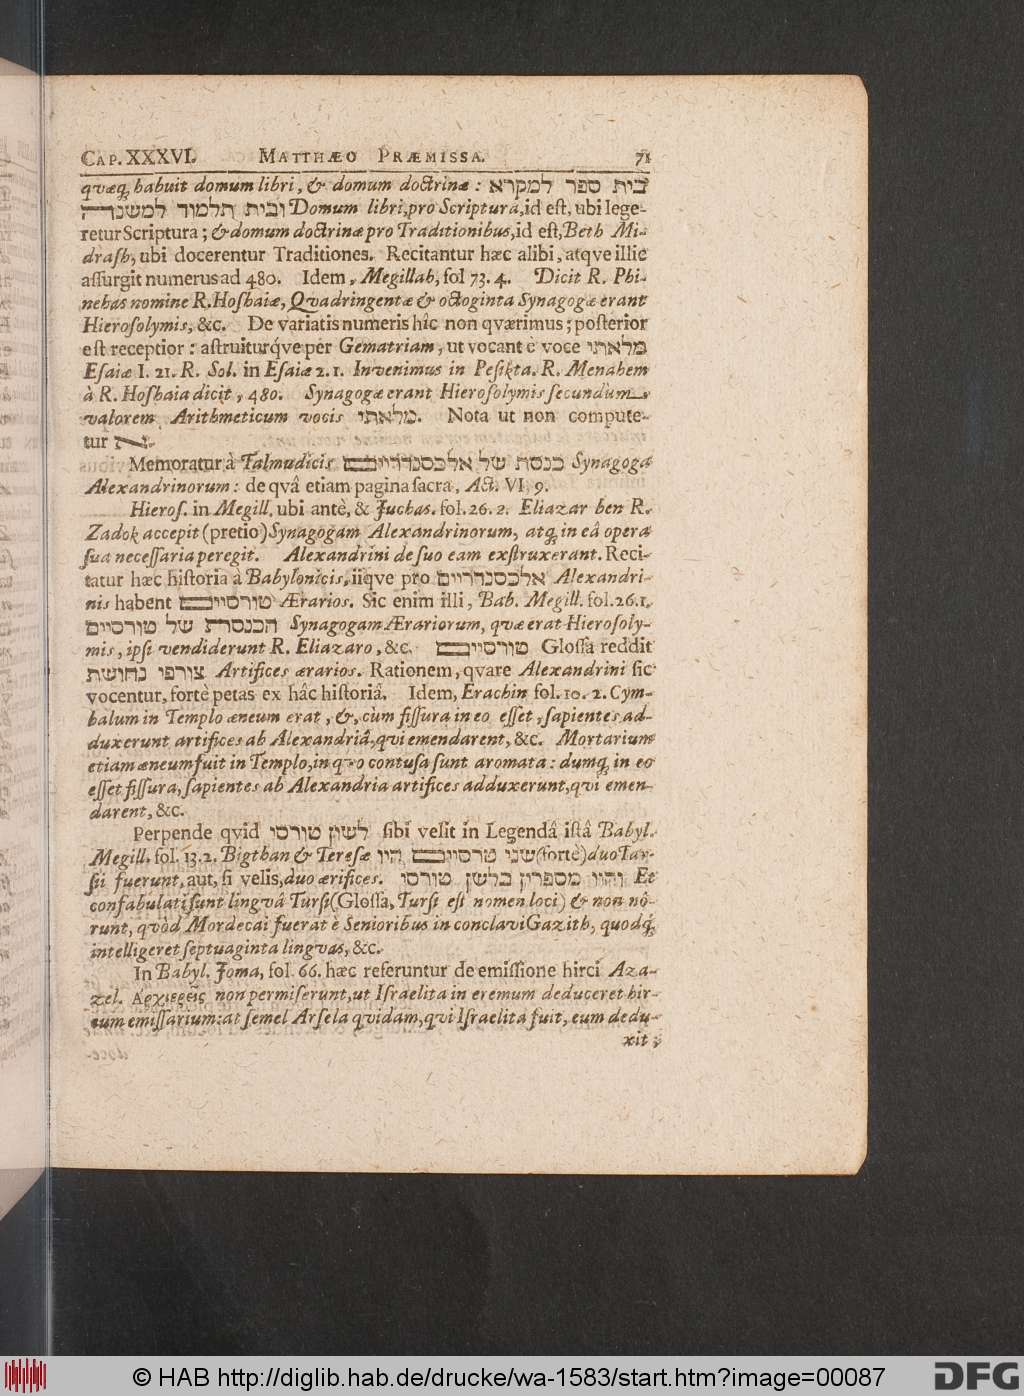 CAP. XXXVI. MATTHÆO PRÆMISSA. 71
qvæq́; habuit domum libri, & domum doctrinæ: בית ספר למקרא
ובית תלמוד למשנה Domum libri, pro Scriptura, id est, ubi lege-
retur Scriptura; & domum doctrinæ pro Traditionibus, id est, Beth Mi-
drash, ubi docerentur Traditiones. Recitantur hæc alibi, atqve illic
assurgit numerus ad 480. Idem, Megillah, fol 73. 4. Dicit R. Phi-
nehas nomine R. Hoshaiæ, Qvadringentæ & octoginta Synagogæ erant
Hierosolymis, &c. De variatis numeris hîc non qværimus; posterior
est receptior: astruiturq́ve per Gematriam, ut vocant è voce מלאתי
Esaiæ I. 21. R. Sol. in Esaiæ 2. 1. Invenimus in Pesikta. R. Menahem
à R. Hoshaia dicit, 480. Synagogæ erant Hierosolymis secundùm
valorem Arithmeticum vocis מלאתי. Nota ut non compute-
tur א.
Memoratur à Talmudicis כנסת של אלכסנדריים Synagoga
Alexandrinorum: de qvâ etiam pagina sacra, Act. VI, 9.
Hieros. in Megill. ubi antè, & Juchas. fol. 26. 2. Eliazar ben R.
Zadok accepit (pretio) Synagogam Alexandrinorum, atq; in eâ opera
sua necessaria peregit. Alexandrini de suo eam exstruxerant. Reci-
tatur hæc historia à Babylonicis, iiqve pro אלכסנדריים Alexandri-
nis habent טורסיים Ærarios. Sic enim illi, Bab. Megill. fol. 26. 1.
הכנסת של טורסיים Synagogam Ærariorum, qvæ erat Hierosoly-
mis, ipsi vendiderunt R. Eliazaro, &c. טורסיים Glossa reddit
צורפי נחושת Artifices ærarios. Rationem, qvare Alexandrini sic
vocentur, fortè petas ex hâc historiâ. Idem, Erachin fol. 10. 2. Cym-
balum in Templo æneum erat, &, cùm fissura in eo esset, sapientes ad-
duxerunt artifices ab Alexandriâ, qvi emendarent, &c. Mortarium
etiam æneum fuit in Templo, in qvo contusa sunt aromata: dumq; in eo
esset fissura, sapientes ab Alexandria artifices adduxerunt, qvi emen-
darent, &c.
Perpende qvid לשון טורסי sibi velit in Legendâ istâ Babyl.
Megill. fol. 13. 2. Bigthan & Teresæ שני טרסיים היו (fortè) duo Tar-
sii fuerunt, aut, si velis, duo ærifices. והיו מספרין בלשן טורסי Et
confabulati sunt linguâ Tursi (Glossa, Tursi est nomen loci) & non nô-
runt, qvòd Mordecai fuerat è Senioribus in conclavi Gazith, quodq́;
intelligeret septuaginta lingvas, &c.
In Babyl. Joma, fol. 66. hæc referuntur de emissione hirci Aza-
zel. Ἀρχιερεῖς non permiserunt, ut Israelita in eremum deduceret hir-
cum emissarium: at semel Arsela quidam, qvi Israelita fuit, eum dedu-
xit;
© HAB http://diglib.hab.de/drucke/wa-1583/start.htm?image=00087
DFG